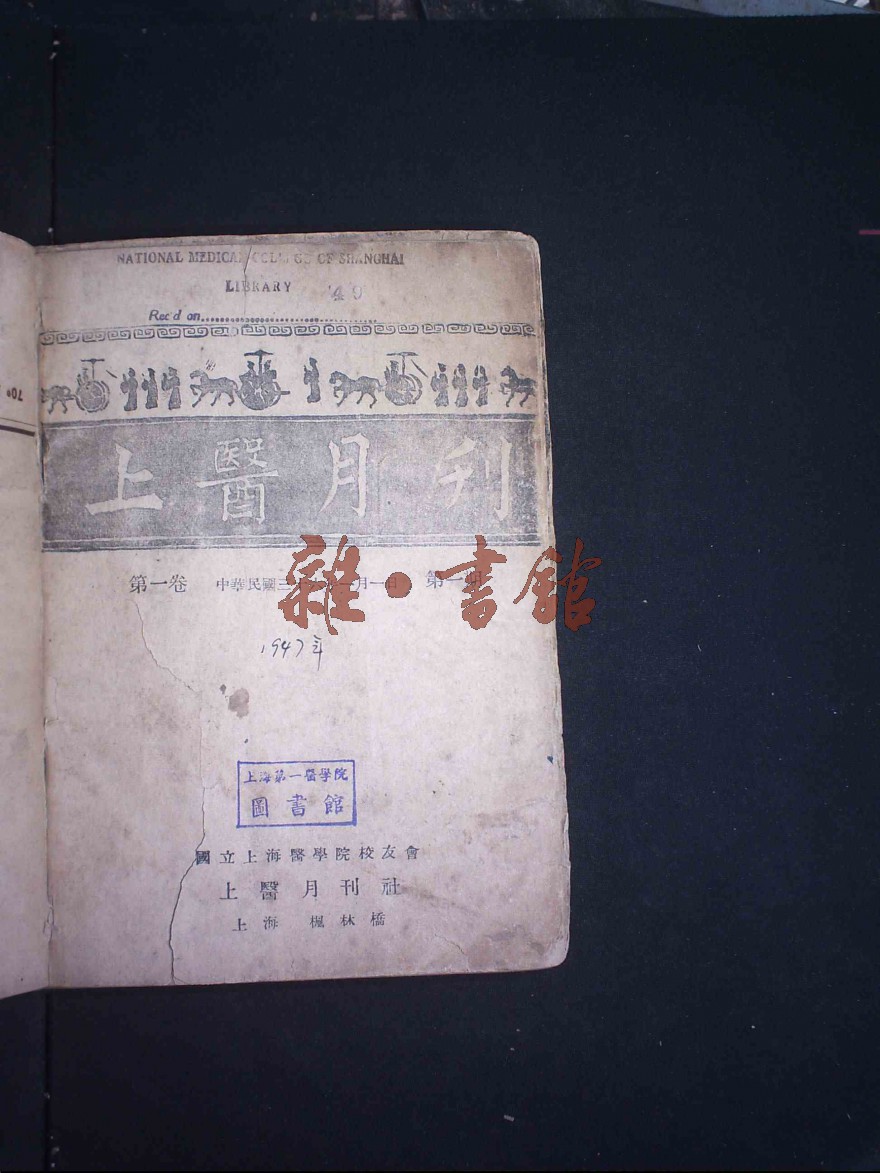 NATIONAL MEDICAL COLLEGE OF SHANGHAI
LIBRARY '49
Rec'd on
上醫月刊
第一卷 中華民國三 月一日 第一期
1947年
雜·書館
上海第一醫學院
圖書館
國立上海醫學院校友會
上醫月刊社
上海 楓林橋
70